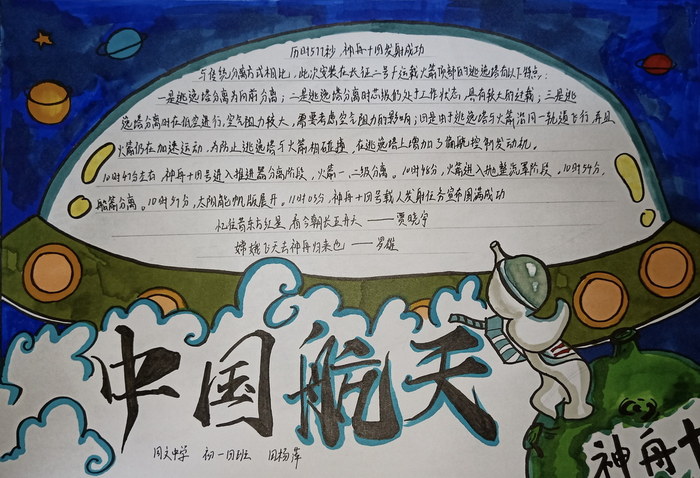 历时577秒,神舟十四发射成功
与传统分离方式相比,此次安装在长征二号F运载火箭顶部的逃逸塔有以下特点:
一是逃逸塔分离为向前分离;二是逃逸塔分离时芯级仍处于工作状态,具有较大的过载;三是逃
逸塔分离时在低空进行,空气阻力较大,需要考虑空气阻力的影响;四是由于逃逸塔与火箭沿同一轨道飞行,并且
火箭仍在加速运动,为防止逃逸塔与火箭相碰撞,在逃逸塔上增加了偏航控制发动机。
10时47分左右,神舟十四号进入推进器分离阶段,火箭一、二级分离。10时48分,火箭进入抛整流罩阶段。10时54分,
船箭分离。10时57分,太阳能帆板展开。11时05分,神舟十四号载人发射任务宣布圆满成功
忆往昔东方红星 看今朝长五升天 ——贾晓宇
嫦娥飞天去神舟归来也 ——罗雄
中国航天
同文中学 初一四班 田杨萍
神舟十